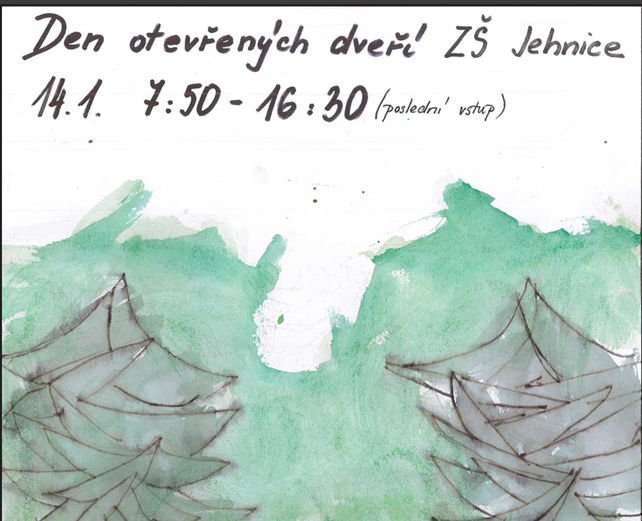 Den otevřených dveří ZŠ Jehnice
14.1. 7:50 - 16:30 (poslední vstup)